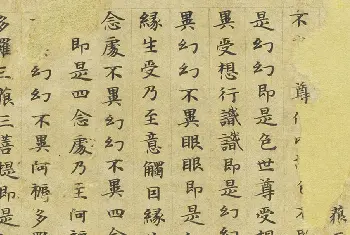 不尊
是幻幻即是色世尊受想
異受想行識識即是幻幻
異幻幻不異眼眼即是
縁生受乃至意觸因縁
念處不異幻幻不異四念
即是四念處乃至阿耨
幻幻不異阿耨多
多羅三藐三菩提即是